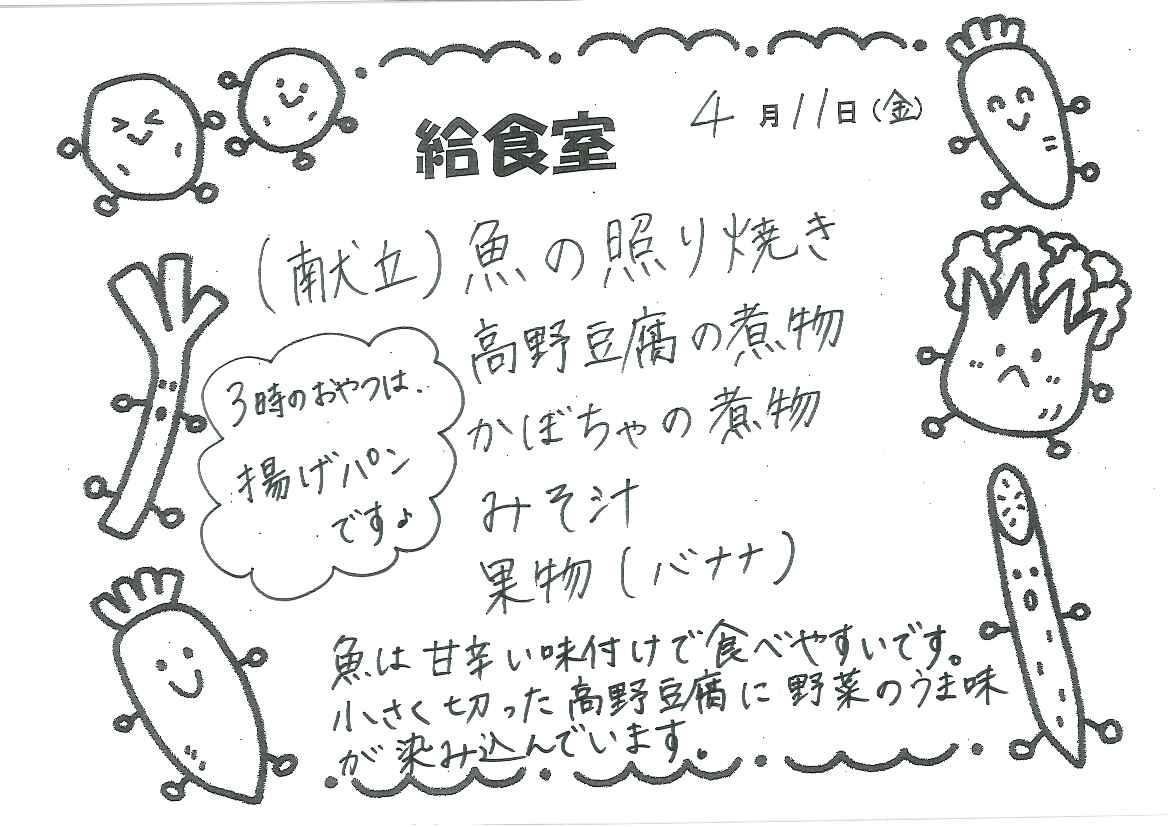 給食室
4月11日(金)
(献立)魚の照り焼き
高野豆腐の煮物
かぼちゃの煮物
みそ汁
果物(バナナ)
3時のおやつは、
揚げパン
です♪
魚は甘辛い味付けで食べやすいです。
小さく切った高野豆腐に野菜のうま味
が染み込んでいます。